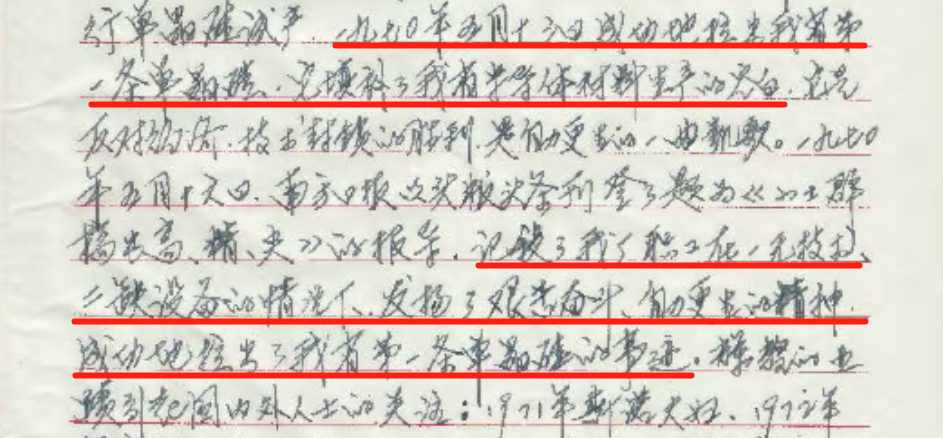 行单晶硅试产.一九七0年五月十六日成功地拉出我省第
一条单晶硅.它填补了我省半导体材料生产的空白.它是
反对、技术封锁的胜利.是自力更生的一曲凯歌。一九七0
年五月十六日.南方日报以头版头条刊登了题为《小土群
搞出高、精、尖》的报导.记载了我厂职工在一无技术、
二缺设备的情况下、发扬了艰苦奋斗、自力更生的精神.
成功地拉出了我省第一条单晶硅的事迹.辉煌的业
绩引起国内外人士的关注：1971年夫妇、1972年